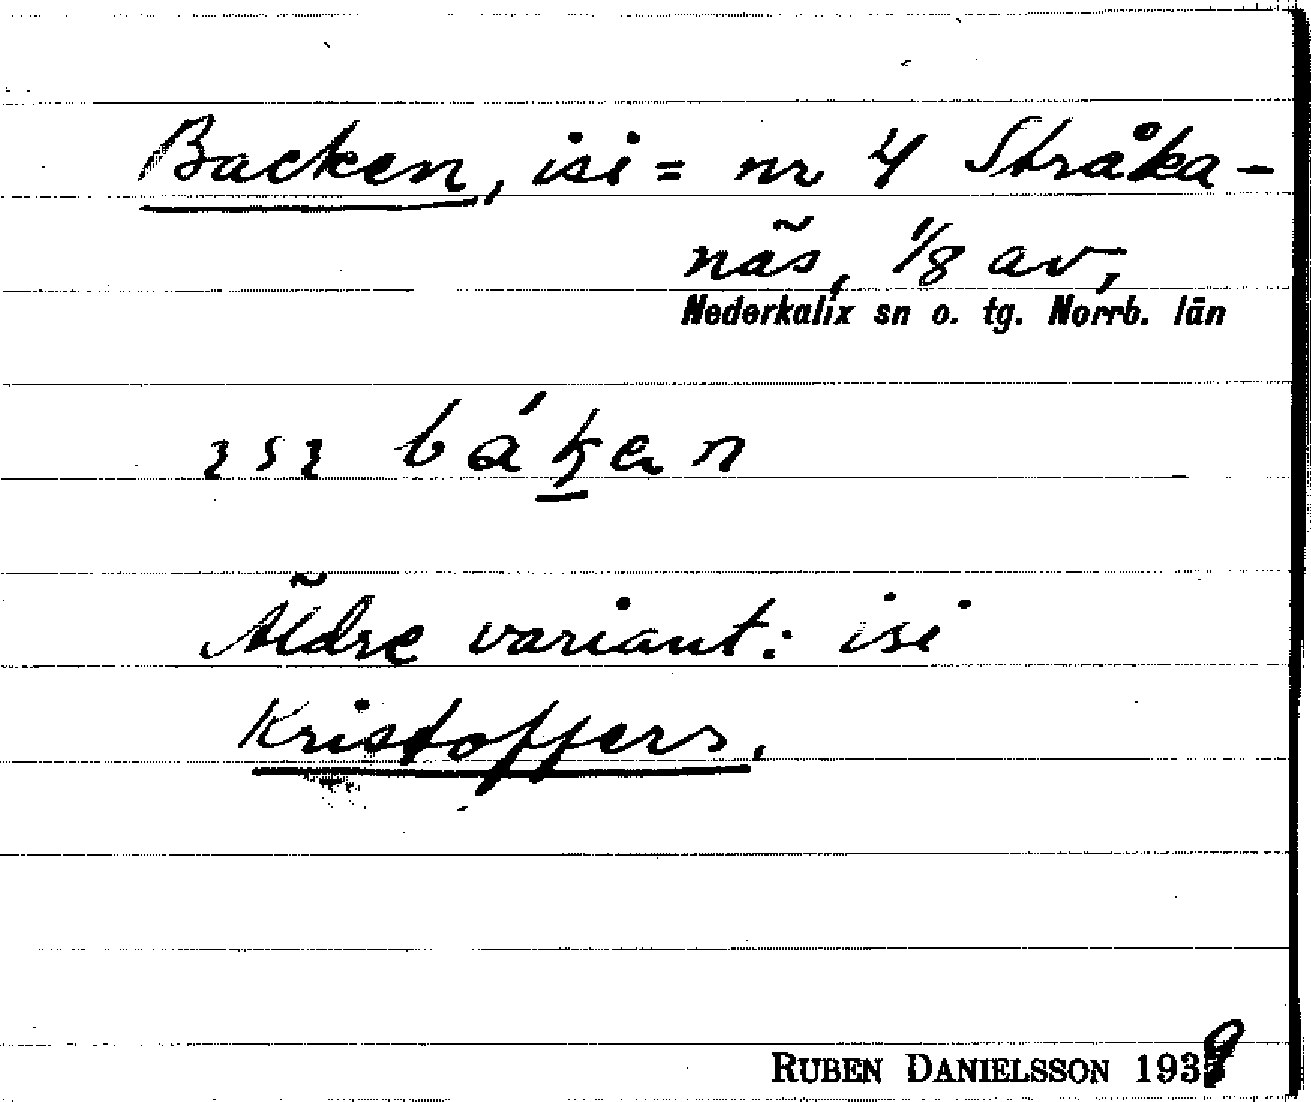 Backen, isi = nr 4 Stråka-
näs, 1/8 av,
Nederkalix sn o. tg. Norrb. län
ısı báḵen
Äldre variant: isi
Kristoffers.
RUBEN DANIELSSON 1939